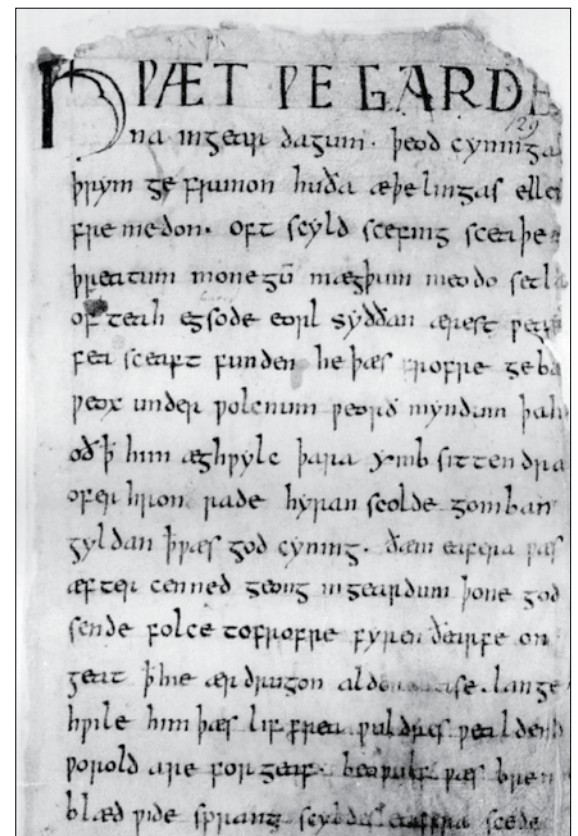 HǷÆT ǷE GARDE
129
na ingear dagum. þeod cyninga
þrym ge frunon huða æþelingas elle
fre medon. oft scyld scefing sceaþe
þreatum monegū mægþum meodo setla
of teah egsode eorl syððan ærest ƿear
fea sceaft funden he þæs frofre geba
ƿeox under ƿolcnum ƿeorð myndum þah
oð ꝥ him æghƿylc þara ymb sittendra
ofer hron rade hyran scolde gomban
gyldan ꝥ ƿæs god cyning. ðæm eafera ƿæs
æfter cenned geong ingeardum þone god
sende folce tofrofre fyren ðearfe on
geat ꝥ hie ær drugon lange
hƿile him þæs lif frea ƿuldres ƿealdend
ƿorold are for geaf. beoƿulf ƿæs brem
blæd ƿide sprang scyldes eafera scede